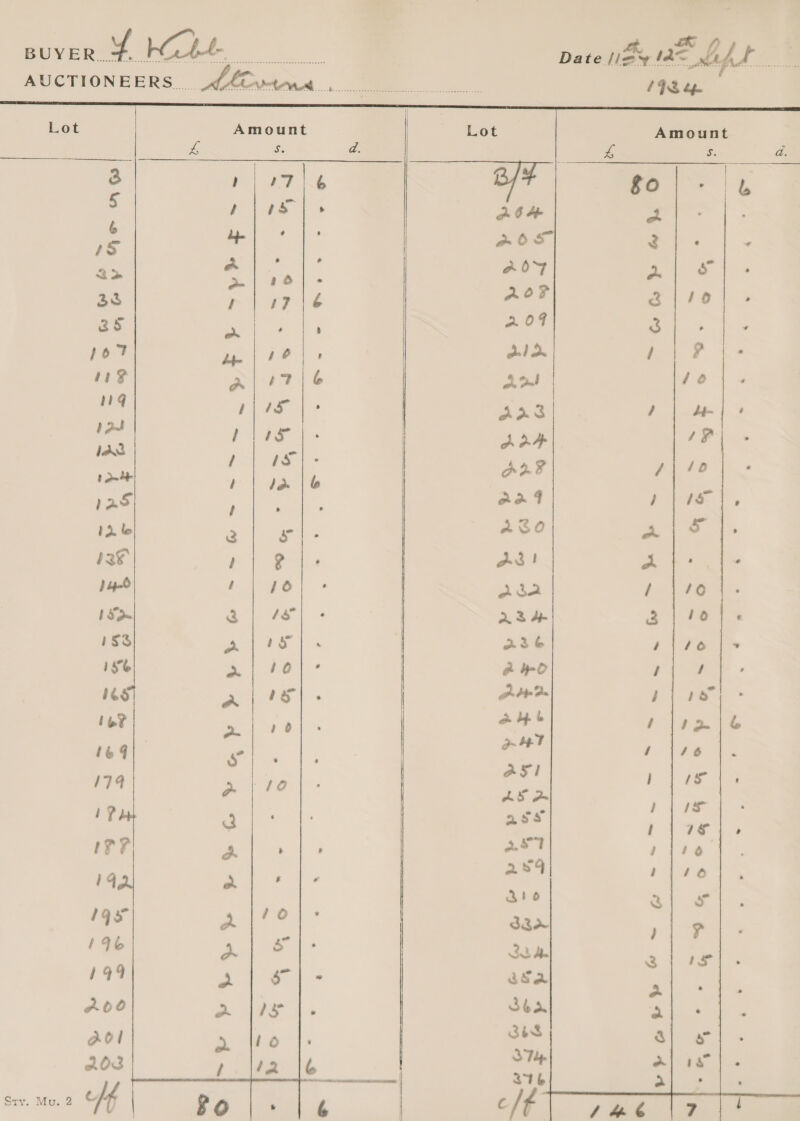 BUYER
Date 11th & 12th Sept
AUCTIONEERS Stevens
1934
Lot Amount
£ s. d.
3 1 17 6
5 1 15 .
6 4 . .
15 2 . .
22 2 10 .
33 1 17 6
35 2 . .
107 4 10 .
118 2 17 6
119 1 15 .
121 1 15 .
123 1 15 .
124 1 12 6
125 1 . .
126 3 5 .
138 1 8 .
140 1 10 .
152 3 15 .
153 2 15 .
156 2 10 .
165 2 15 .
168 2 10 .
169 5 . .
174 2 10 .
184 3 . .
188 2 . .
192 2 . .
195 2 10 .
196 2 5 .
199 2 5 .
200 2 15 .
201 2 10 .
203 1 12 6
c/f 80 . 6
Lot Amount
£ s. d.
B/F 80 . 6
204 2 . .
205 3 . .
207 2 5 .
208 3 10 .
209 3 . .
212 1 8 .
221 10 .
223 1 4 .
224 18 .
228 1 10 .
229 1 15 .
230 2 5 .
231 2 . .
232 1 10 .
234 3 10 .
236 1 10 .
240 1 1 .
242 1 15 .
246 1 12 6
247 1 10 .
251 1 15 .
252 1 15 .
255 1 15 .
257 1 10 .
259 1 10 .
310 3 5 .
332 1 8 .
334 3 15 .
352 2 . .
362 2 . .
363 3 5 .
374 2 15 .
376 2 . .
c/f 146 7
Stv. Mu. 2